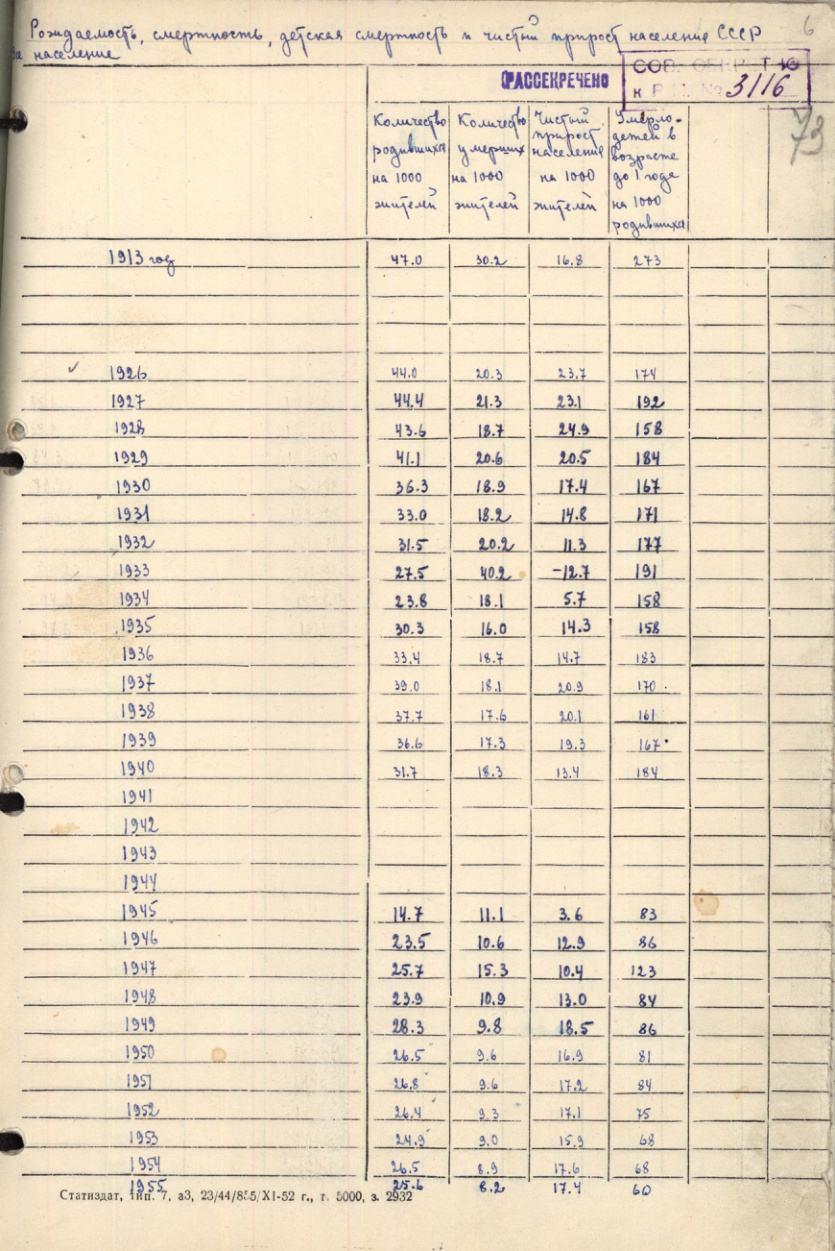 Рождаемость, смертность, детская смертность и чистый прирост населения СССР
население
6
РАССЕКРЕЧЕНО
СОВ. СЕКРЕТНО
к № 3116
73
Количество родившихся на 1000 жителей
Количество умерших на 1000 жителей
Чистый прирост населения на 1000 жителей
Умерло детей в возрасте до 1 года на 1000 родившихся
1913 год 47.0 30.2 16.8 273
1926 44.0 20.3 23.7 174
1927 44.4 21.3 23.1 192
1928 43.6 18.7 24.9 158
1929 41.1 20.6 20.5 184
1930 36.3 18.9 17.4 167
1931 33.0 18.2 14.8 171
1932 31.5 20.2 11.3 177
1933 27.5 40.2 -12.7 191
1934 23.8 18.1 5.7 158
1935 30.3 16.0 14.3 158
1936 33.4 18.7 14.7 183
1937 39.0 18.1 20.9 170
1938 37.7 17.6 20.1 161
1939 36.6 17.3 19.3 167
1940 31.7 18.3 13.4 184
1941
1942
1943
1944
1945 14.7 11.1 3.6 83
1946 23.5 10.6 12.9 86
1947 25.7 15.3 10.4 123
1948 23.9 10.9 13.0 84
1949 28.3 9.8 18.5 86
1950 26.5 9.6 16.9 81
1951 26.8 9.6 17.2 84
1952 26.4 9.3 17.1 75
1953 24.9 9.0 15.9 68
1954 26.5 8.9 17.6 68
1955 25.6 8.2 17.4 60
Статиздат, тип. 7, а3, 23/44/855/XI-52 г., т. 5000, з. 2932